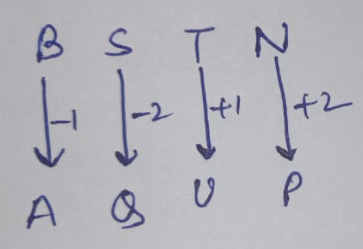 B S T N
-1 -2 +1 +2
A Q U P